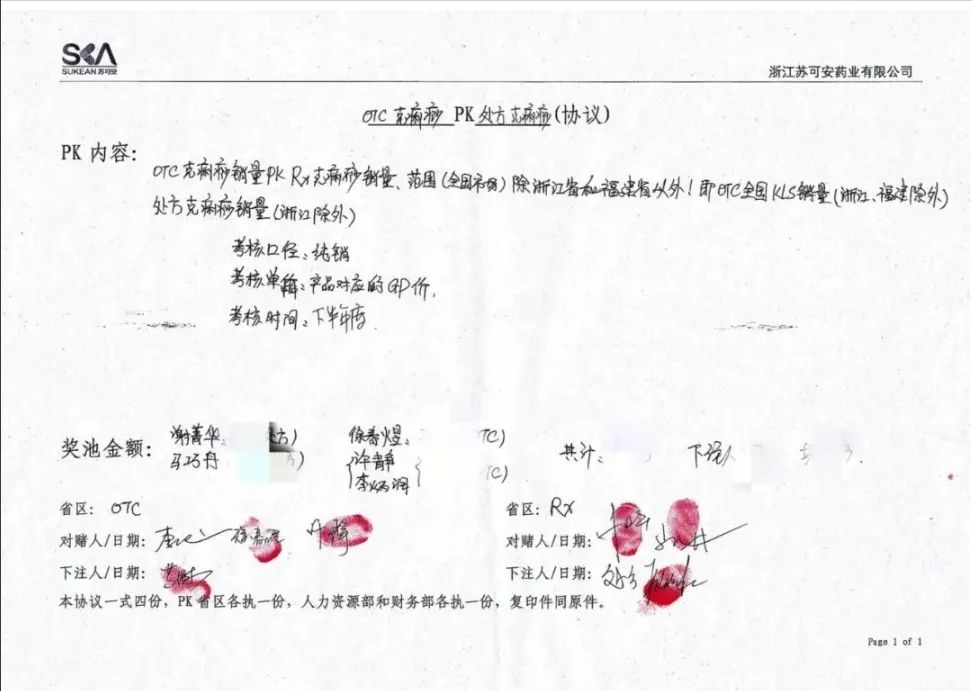 SKA
SUKEAN 苏可安
浙江苏可安药业有限公司
OTC 克痢痧 PK 处方克痢痧 (协议)
PK 内容:
OTC克痢痧销量PK Rx克痢痧销量、范围(全国) 除浙江省和福建省以外! 即OTC全国KLS销量(浙江、福建除外)
处方克痢痧销量(浙江除外)
考核口径:纯销
考核单价:产品对应的GP价.
考核时间:下半年度.
奖池金额: 谢菁华: 方) 徐春煜: TC) 共计: 下注
马巧丹 方) 许静 TC)
李炳润
省区: OTC 省区: Rx
对赌人/日期: 对赌人/日期:
下注人/日期: 下注人/日期:
本协议一式四份,PK 省区各执一份,人力资源部和财务部各执一份,复印件同原件。
Page 1 of 1